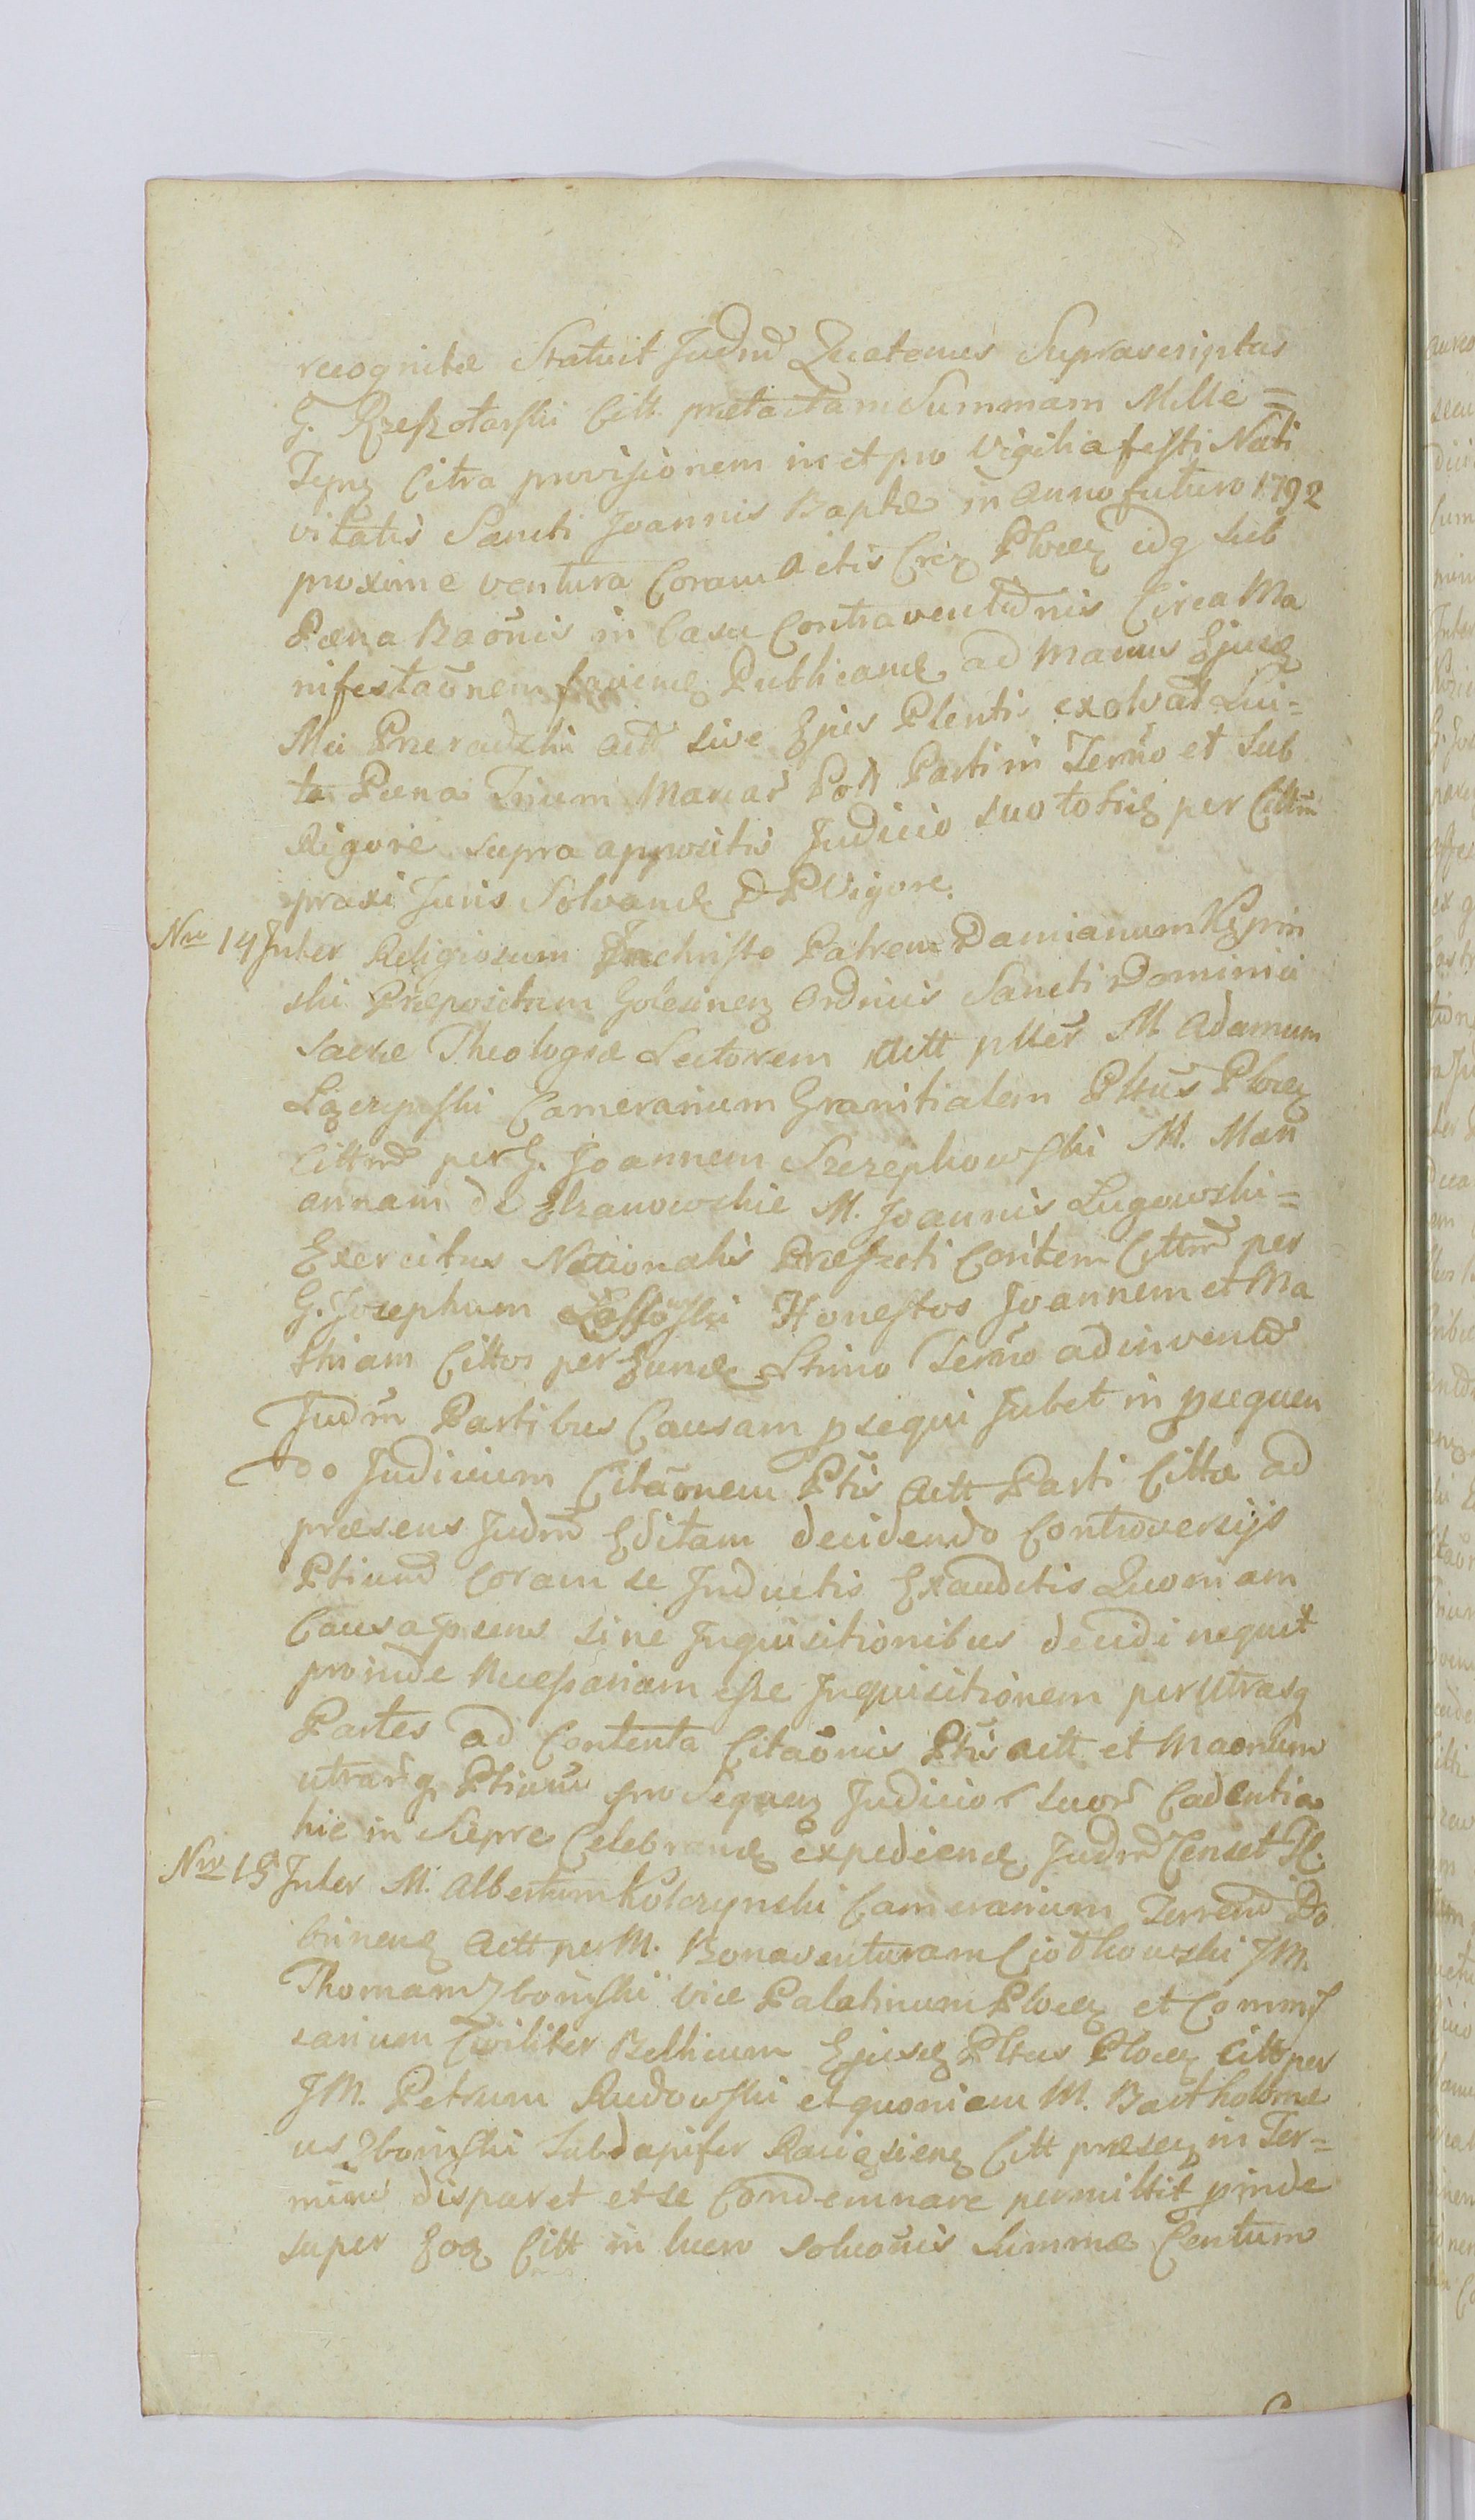 recognitæ Statuit Judm̃ Quatenus Suprascriptus
G. Rzeszotarski Citt. prætactam Summam Mille =
Tynf Citra provisionem in et pro Vigilia festi Nati
vitatis Sancti Joannis Baptæ in Anno futuro 1792
proxime ventura Coram Actis Crĩz Plocen idq sub
Pæna Baõnis in Casu Contraventionis Circa Ma
nifestaõnem faciend Publicand ad Manus Ejusd
Mci Przeradzki Actt sive Ejus Plentis exolvat Lui-
ta Pæna Trium Marcar̃ Poll Parti in Termo et sub
Rigore supra appositis Judicio suo toties per Cittm̃
praxi Juris Solvand D P Vigore.
Nro 14 Inter Religiosum In Christo Patrem Damianum Kęprin
ski Præpositum Golesinen Ordinis Sancti Dominici
Sacræ Theologiæ Lectorem Actt pller̃ M Adamum
Łączyński Camerarium Granitialem Pltũs Plocen
Cittm̃ per G. Joannem Szczepkowski M. Mari
annam de Chanowskie M. Joannis Ługowski =
Exercitus Nationalis Præfecti Contem Cittm̃ per
G. Josephum Lassowski Honestos Joannem et Ma
thiam Cittos per eund Ltimo Termo adinvento
Judm̃ Partibus Causam psequi Jubet in psequen
do Judicium Citaõnem Ptis Actt Parti Cittæ ad
præsens Judm̃ Editam decidendo Controversijs
Ptium Coram se Inductis Exauditis Quoniam
Causa præsens sine Inquisitionibus decidi nequit
proinde Necessariam esse Inquisitionem per Utrasq
Partes ad Contenta Citaõnis Ptis Actt et Maonum
utrarq Ptium pro Sequen Judicior̃ suor̃ Cadentia
hic in Sieprc Celebrand expediend Judm̃ Censet D.
Nro 15 Inter M. Albertum Kolczynski Camerarium Terrenm̃ Do
brinens Actt per M. Bonaventuram Ciołkowski J M.
Thomam Zboinski Vice Palatinum Plocen et Commis
sarium Civiliter Bellicum Ejusd Pltus Plocen Citt per
J M. Petrum Rudowski et quoniam M. Bartholomæ
us Zboinski Subdapifer Raciążen Citt præsen in Ter=
mino disparet et se Condemnare permittit pinde
super Eoq Citt in lucro soluõnis Summæ Centum